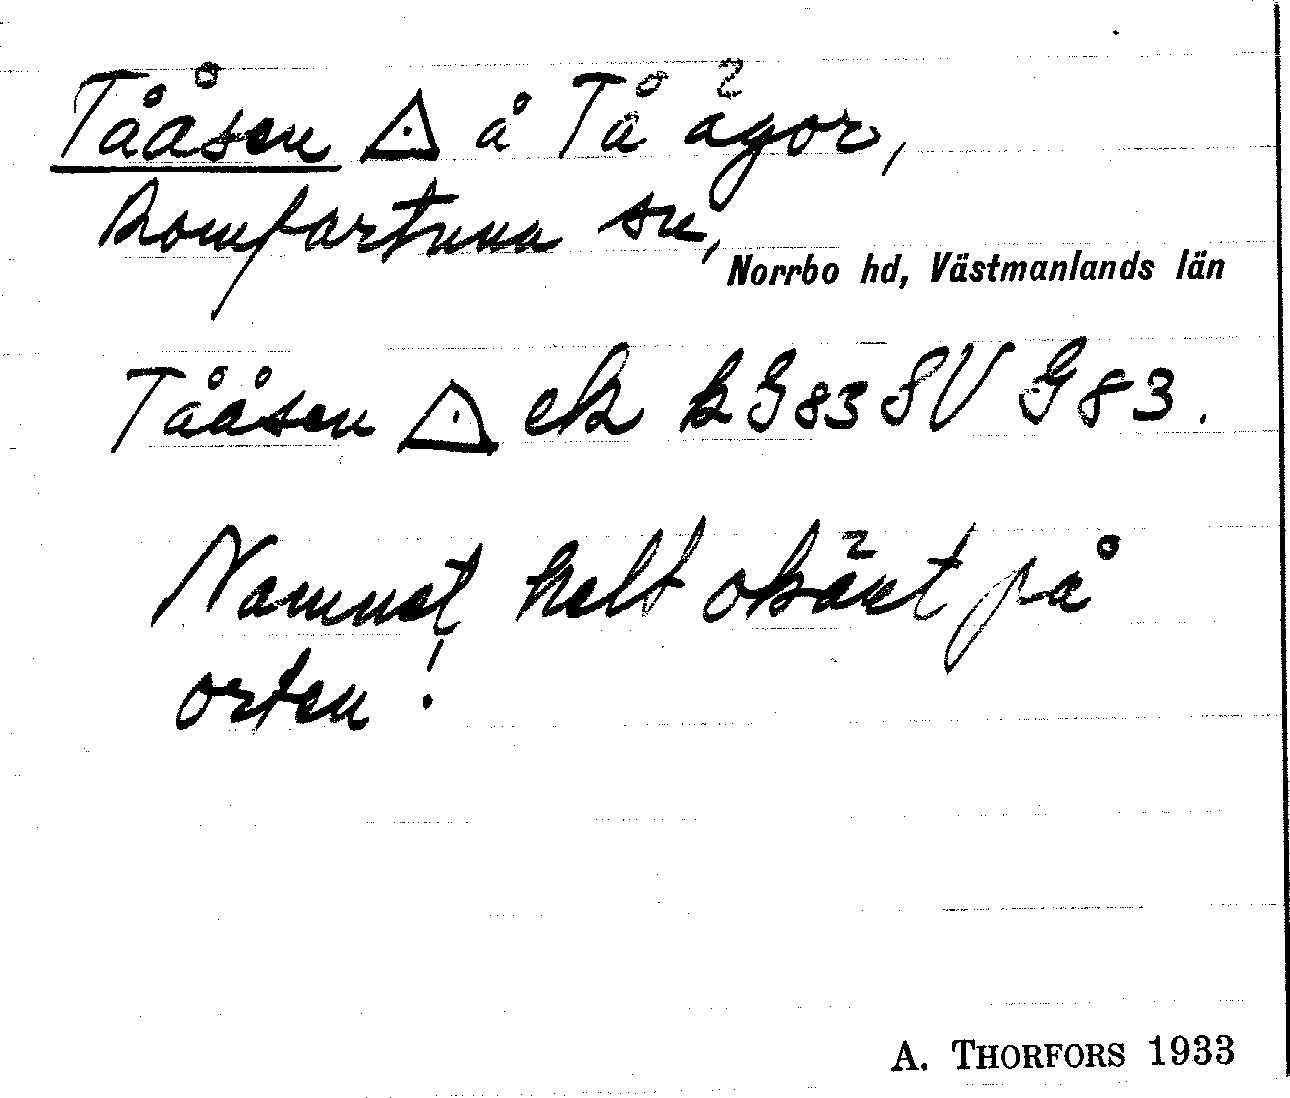 Tååsen △ å Tå ägor,
Romfartuna sn,
Norrbo hd, Västmanlands län
Tååsen △ ek k G83 SV G83.
Namnet helt okänt på
orten!
A. THORFORS 1933